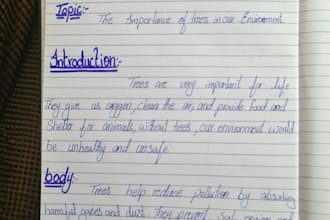 Topic:-
The Importance of trees in our Environment
Introduction:-
Trees are very important for life
They give us oxygen, clean the air, and provide food and
Shelter for animals, Without trees, our environment would
be unhealthy and unsafe.
body:-
Trees help reduce pollution by absorbing
harmful gases and dust. They prevent soil erosion and